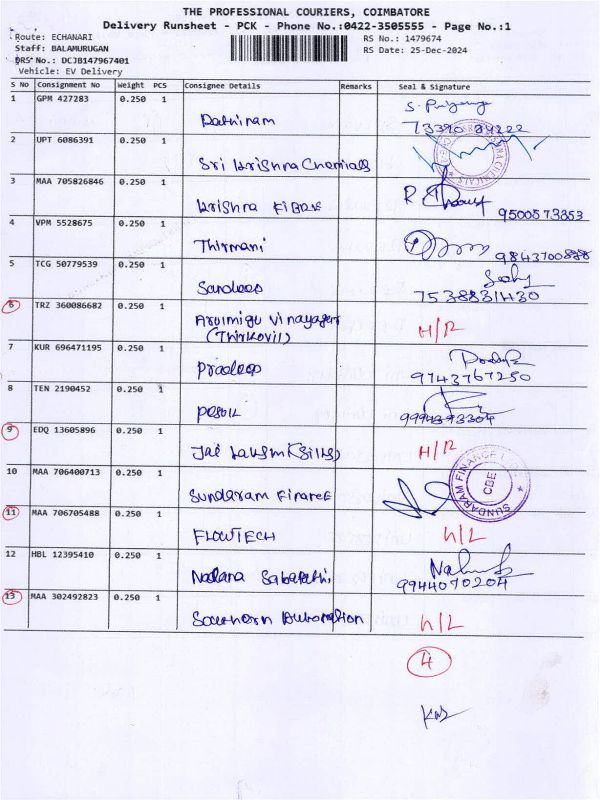 THE PROFESSIONAL COURIERS, COIMBATORE
Delivery Runsheet - PCK - Phone No.:0422-3505555 - Page No.:1
Route: ECHANARI
RS No.: 1479674
Staff: BALAMURUGAN
RS Date: 25-Dec-2024
DRS No.: DCJB147967401
Vehicle: EV Delivery
S No Consignment No Weight PCS Consignee Details Remarks Seal & Signature
1 GPM 427283 0.250 1
S. Priyang
2 UPT 6086391 0.250 1
Sri Krishna Chemicals
3 MAA 705826846 0.250 1
Krishna FIBRE
9500573353
4 VPM 5528675 0.250 1
Thirmani
5 TCG 50779539 0.250 1
Sandeep
7538831430
6 TRZ 360086682 0.250 1
Arulmigu Vinayager
(Thirkovil)
7 KUR 696471195 0.250 1
Pradeep
9743767250
8 TEN 2190452 0.250 1
9 EDQ 13605896 0.250 1
Jai Lakshmi (Silks)
10 MAA 706400713 0.250 1
Sundaram Finance
SUNDARAM FINANCE LTD.
CBE
11 MAA 706705488 0.250 1
FLOWTECH
12 HBL 12395410 0.250 1
Nadana Sabapathi
9944070204
13 MAA 302492823 0.250 1
Southern Automation
4